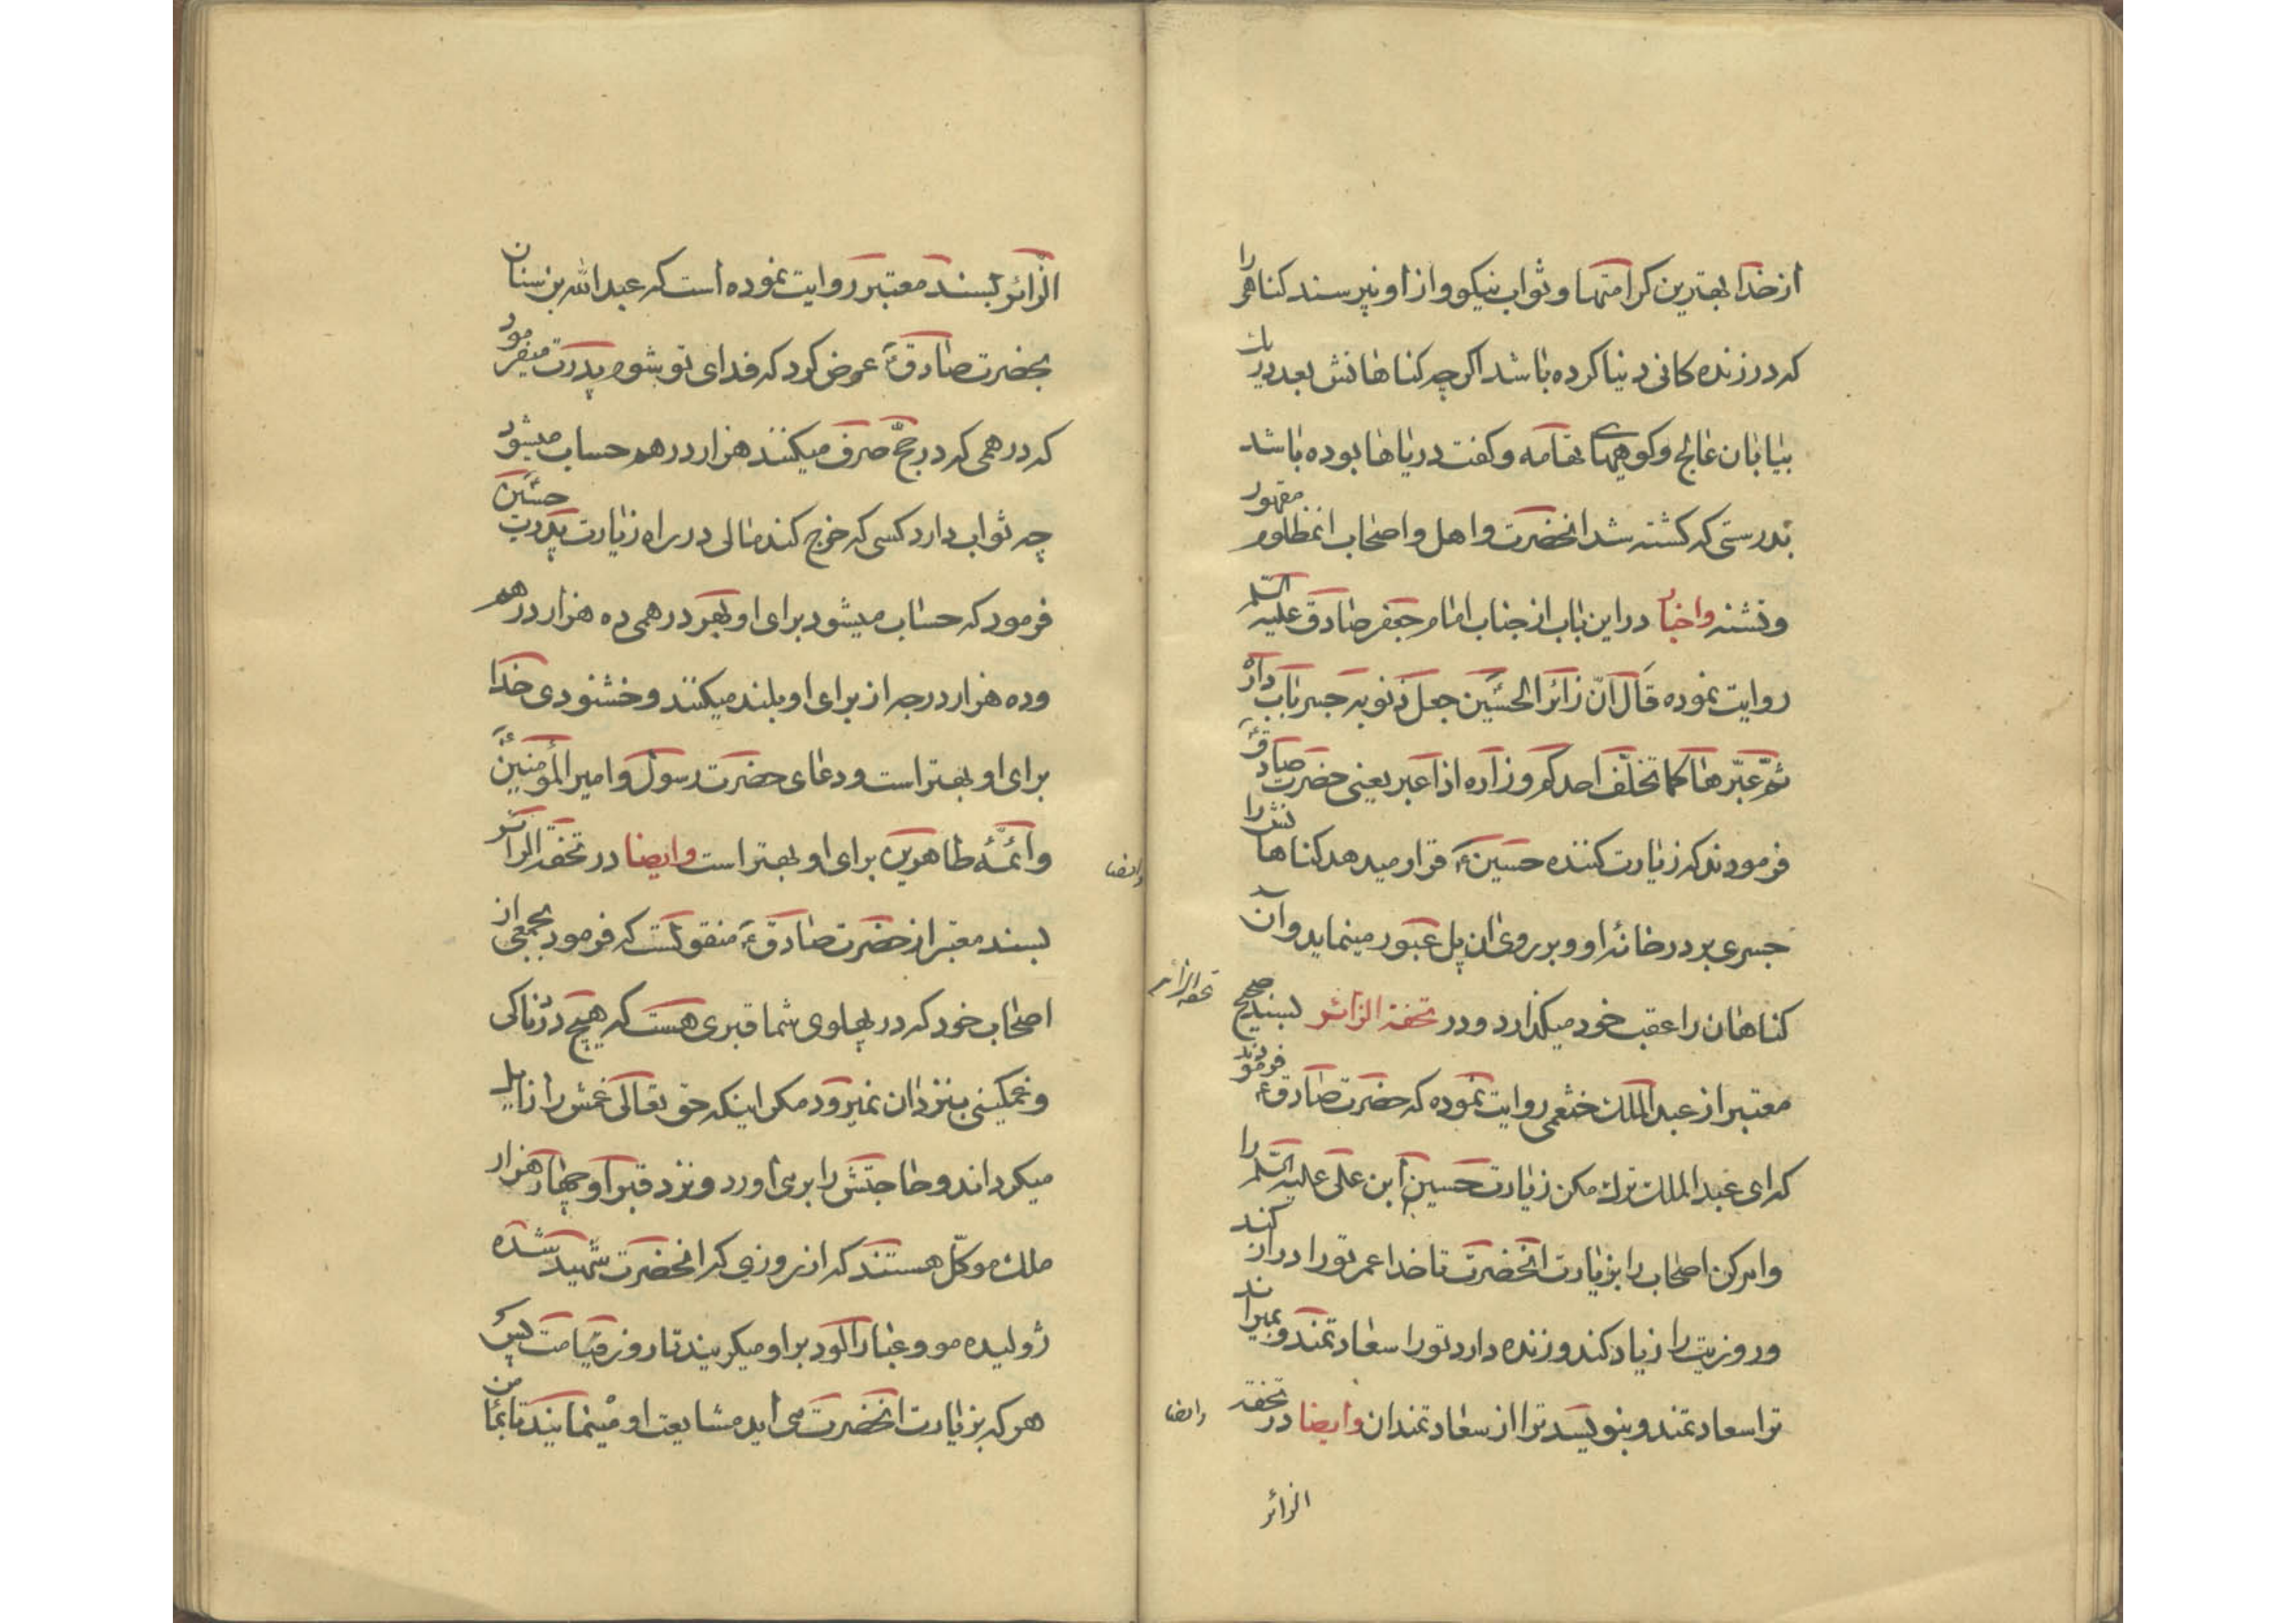 از خدا بهترین کرامتها و ثواب نیکو و از او نپرسند کناهی را
که در زنده کانی دنیا کرده باشد اکر چه کناهانش بعدد ریك
بیابان عالج و کوههای تهامه و کفت دریاها بوده باشد
بدرستی که کشته شد انحضرت و اهل و اصحاب انمظلوم مقهور
و تشنه واخبار در این باب از جناب امام جعفر صادق علیه السلم
روایت نموده قال ان زائر الحسین جعل ذنوبه جسر باب داره
ثم عبرها کما تخلف احدکم وراءه اذا عبر یعنی حضرت صادق ع
فرمودند که زیارت کننده حسین ع قرار میدهد کناهانش را
جسری بر در خانه او و بر روی ان پل عبور مینماید و آن
کناهان را عقب خود میکذارد و در تحفة الزائر بسند صحیح
تحفه الزائر
معتبر از عبد الملك خثعمی روایت نموده که حضرت صادق ع فرمودند
که ای عبد الملك ترك مکن زیارت حسین ابن علی علیه السلم را
و امر کن اصحاب را بزیارت انحضرت تا خدا عمر تو را دراز کند
و روزیت را زیاد کند و زنده دارد تو را سعادتمند و بمیراند
ترا سعادتمند و بنویسد ترا از سعادتمندان وایضا در تحفة
وایضا
الزائر
الزائر بسند معتبر روایت نموده است که عبد الله بن سنان
بحضرت صادق ع عرض کرد که فدای تو بشوم پدرت میفرمود
که درهمی که در حج صرف میکنند هزار درهم حساب میشود
چه ثواب دارد کسی که خرج کند مالی در راه زیارت پدرت حسین
فرمود که حساب میشود برای او بهر درهمی ده هزار درهم
و ده هزار درجه از برای او بلند میکنند و خشنودی خدا
برای او بهتر است و دعای حضرت رسول و امیر المؤمنین ع
و ائمه طاهرین برای او بهتر است وایضا در تحفة الزائر
وایضا
بسند معتبر از حضرت صادق ع منقولست که فرمود بجمعی از
اصحاب خود که در پهلوی شما قبری هست که هیچ دردناکی
و غمکینی بنزد ان نمیرود مکر اینکه حق تعالی غمش را زایل
میکرداند و حاجتش را بر می اورد و نزد قبر او چهار هزار
ملك موکل هستند که از روزی که انحضرت شهید شده
ژولیده مو و غبار الود بر او میکریند تا روز قیامت پس
هر که بزیارت انحضرت می اید مشایعت او مینمایند تا بمأمن